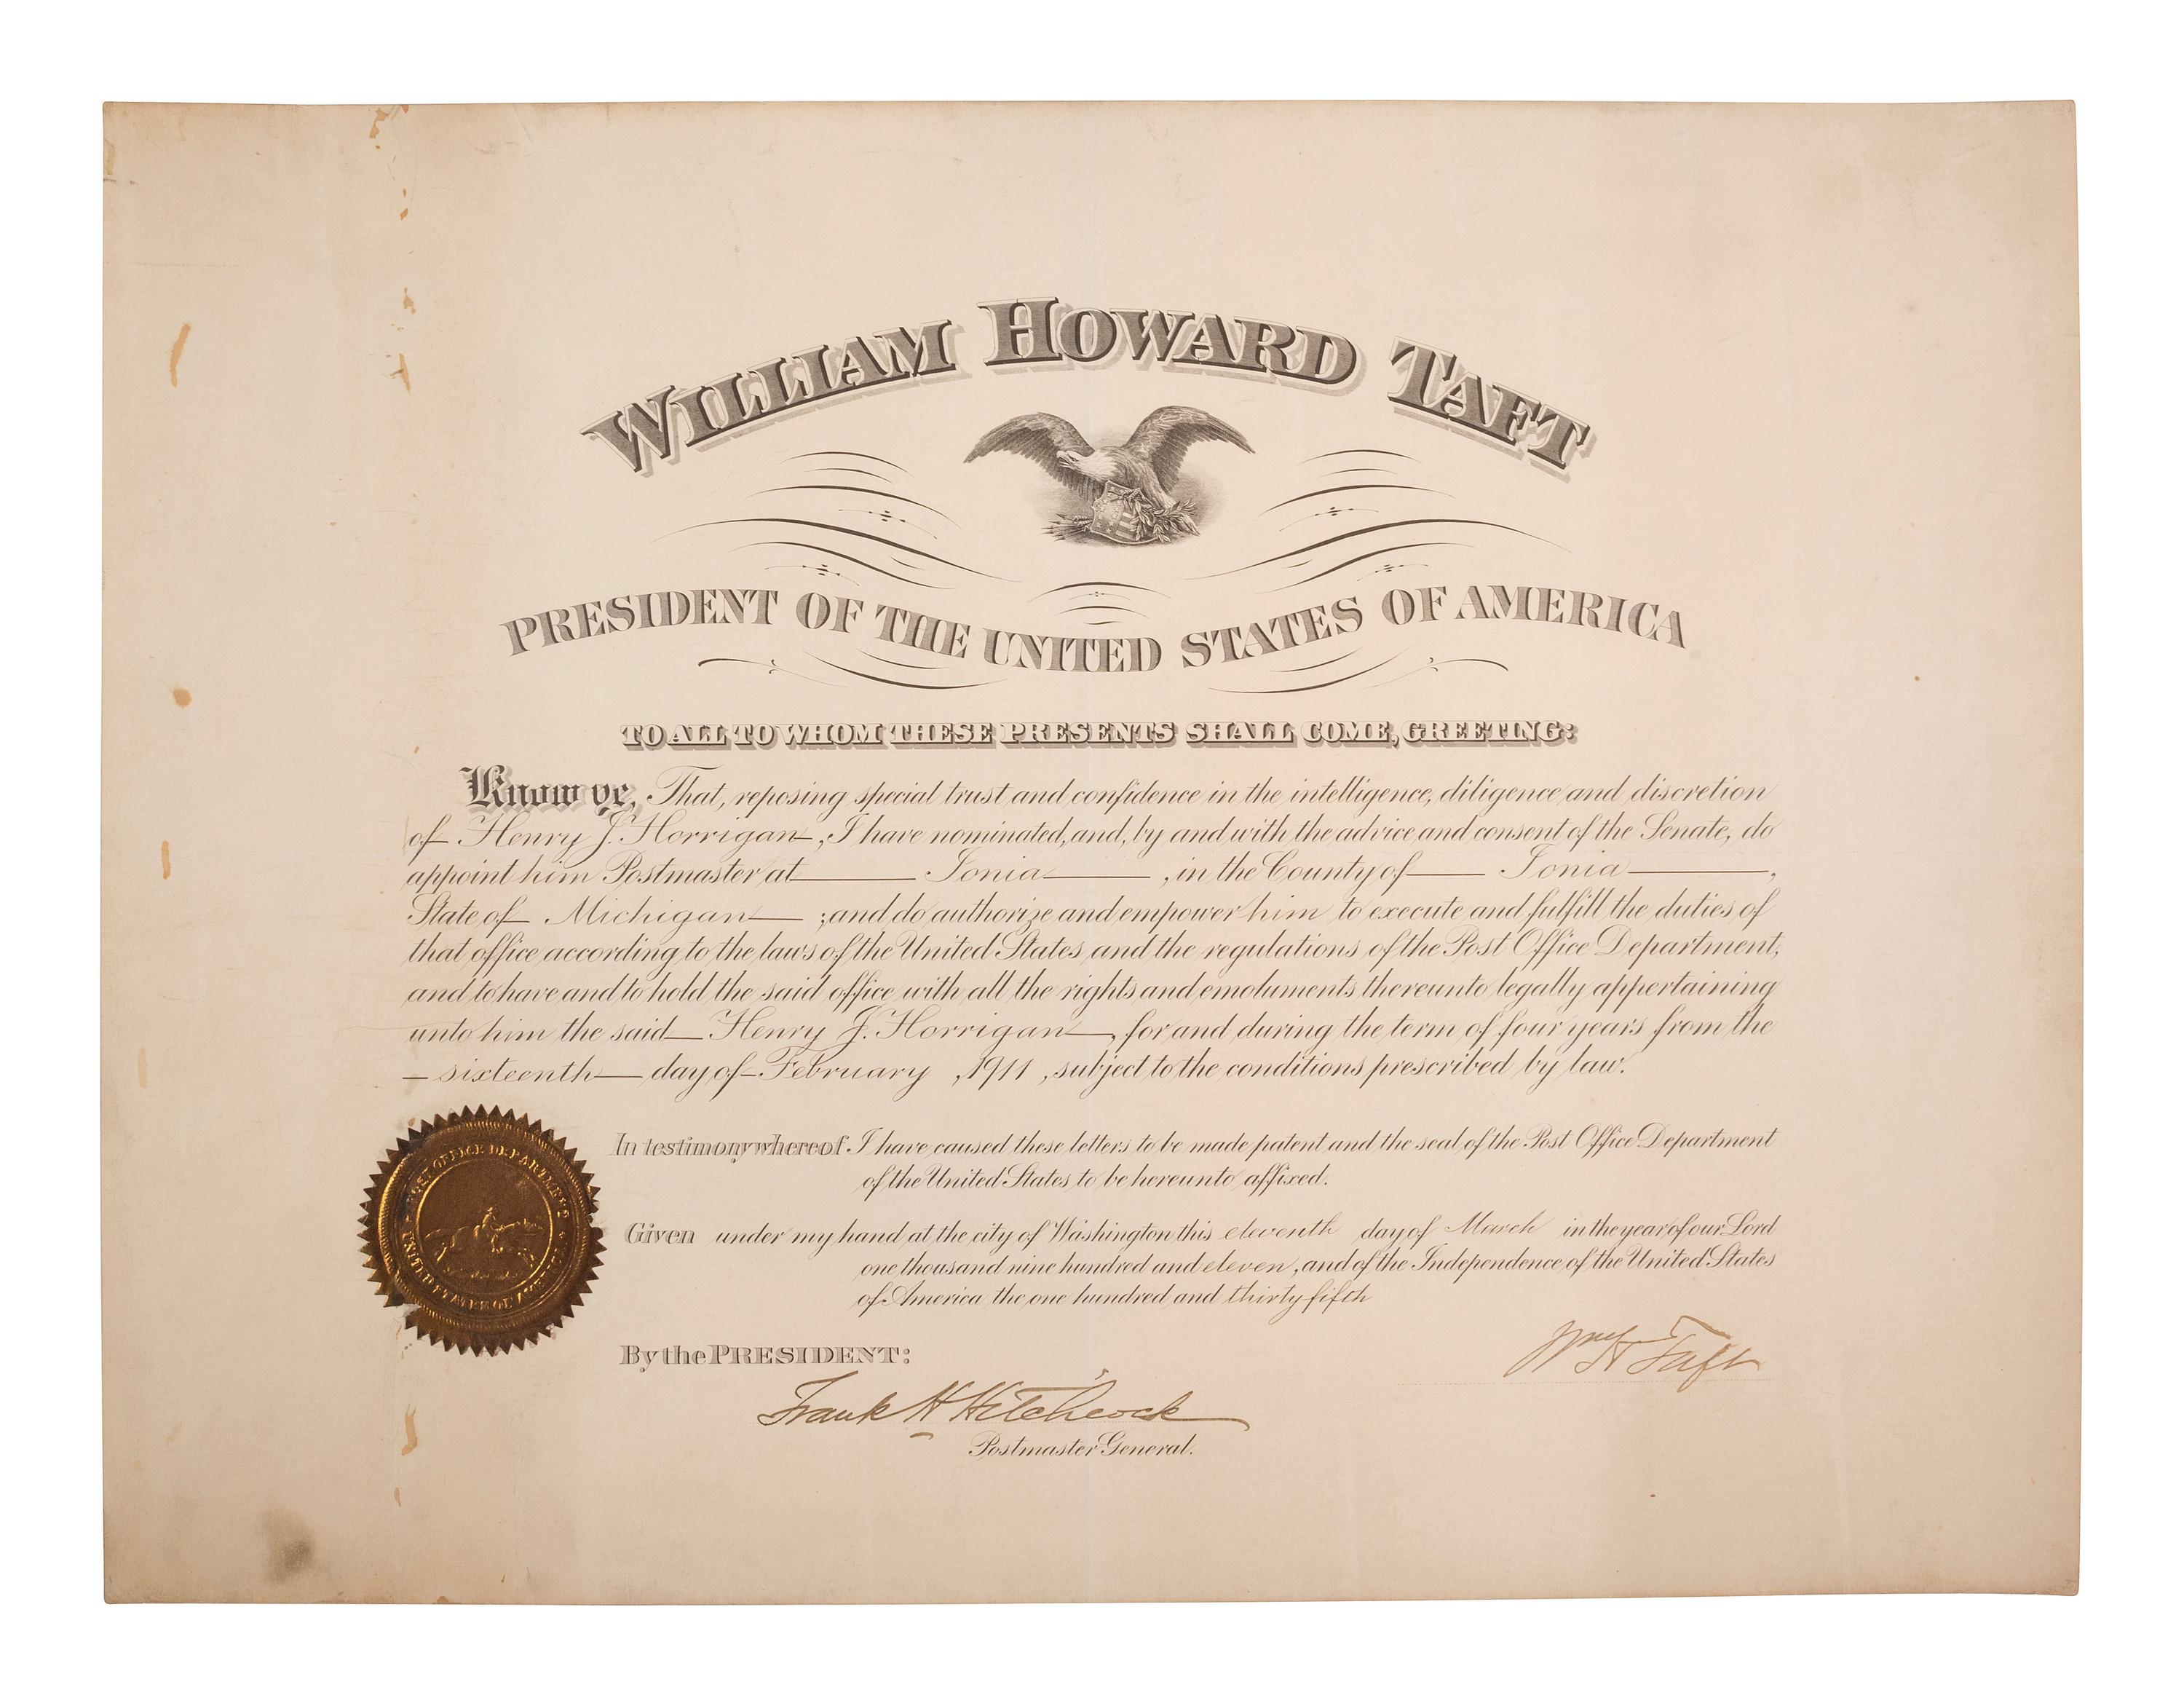 WILLIAM HOWARD TAFT
PRESIDENT OF THE UNITED STATES OF AMERICA
TO ALL TO WHOM THESE PRESENTS SHALL COME, GREETING:
Know ye, That, reposing special trust and confidence in the intelligence, diligence and discretion
of Henry J. Horrigan, I have nominated, and, by and with the advice and consent of the Senate, do
appoint him Postmaster at Ionia, in the County of Ionia,
State of Michigan; and do authorize and empower him to execute and fulfill the duties of
that office according to the laws of the United States and the regulations of the Post Office Department,
and to have and to hold the said office with all the rights and emoluments thereunto legally appertaining
unto him the said Henry J. Horrigan, for and during the term of four years from the
sixteenth day of February, 1911, subject to the conditions prescribed by law.
In testimony whereof I have caused these letters to be made patent and the seal of the Post Office Department
of the United States to be hereunto affixed.
Given under my hand at the city of Washington this eleventh day of March in the year of our Lord
one thousand nine hundred and eleven, and of the Independence of the United States
of America the one hundred and thirty fifth
By the PRESIDENT:
Wm H Taft
Frank H Hitchcock
Postmaster General.
POST OFFICE DEPARTMENT
UNITED STATES OF AMERICA